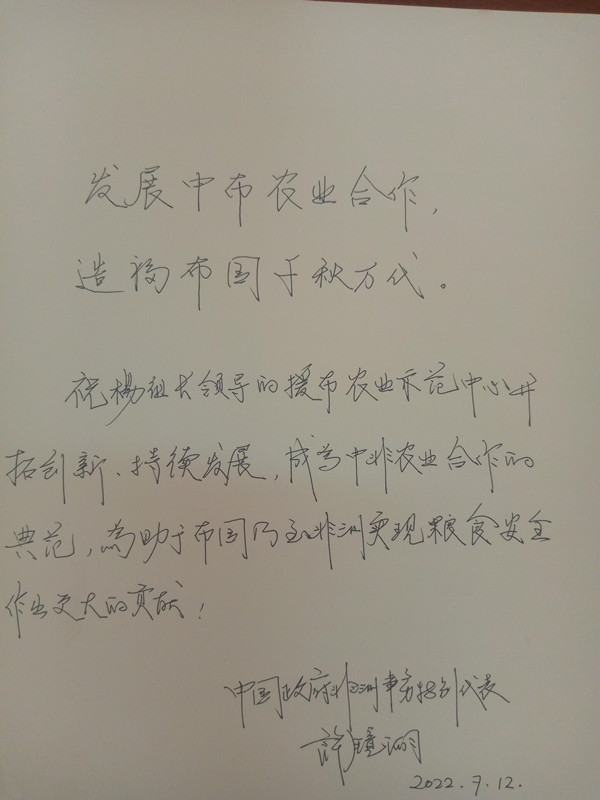 发展中布农业合作，
造福布国千秋万代。
祝杨组长领导的援布农业示范中心开
拓创新、持续发展，成为中非农业合作的
典范，為助于布国乃至非洲实现粮食安全
作出更大的贡献！
中国政府非洲事务特别代表
許镜湖
2022.7.12.